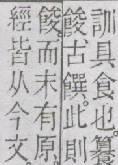 訓具食也。籑
餕古饌。此則
餕而未有原。
經皆从今文。